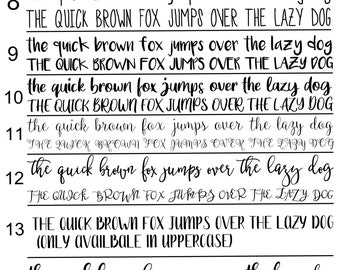 8
THE QUICK BROWN FOX JUMPS OVER THE LAZY DOG
9
the quick brown fox jumps over the lazy dog
THE QUICK BROWN FOX JUMPS OVER THE LAZY DOG
10
the quick brown fox jumps over the lazy dog
THE QUICK BROWN FOX JUMPS OVER THE LAZY DOG
11
the quick brown fox jumps over the lazy dog
THE QUICK BROWN FOX JUMPS OVER THE LAZY DOG
12
the quick brown fox jumps over the lazy dog
THE QUICK BROWN FOX JUMPS OVER THE LAZY DOG
13
THE QUICK BROWN FOX JUMPS OVER THE LAZY DOG
(ONLY AVAILBALE IN UPPERCASE)